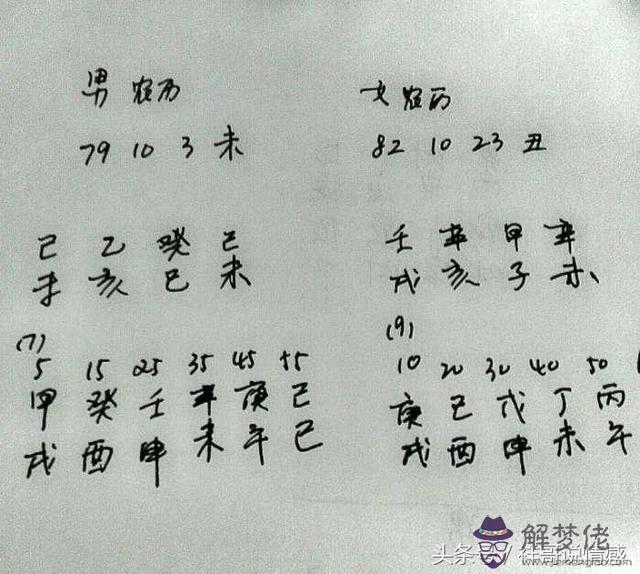 男 农历
79 10 3 未
己 乙 癸 己
未 亥 巳 未
(7)
5 15 25 35 45 55
甲 癸 壬 辛 庚 己
戌 酉 申 未 午 巳
女 农历
82 10 23 丑
壬 辛 甲 辛
戌 亥 子 未
(9)
10 20 30 40 50
庚 己 戊 丁 丙
戌 酉 申 未 午
解梦佬
头条号/佳哥说情感